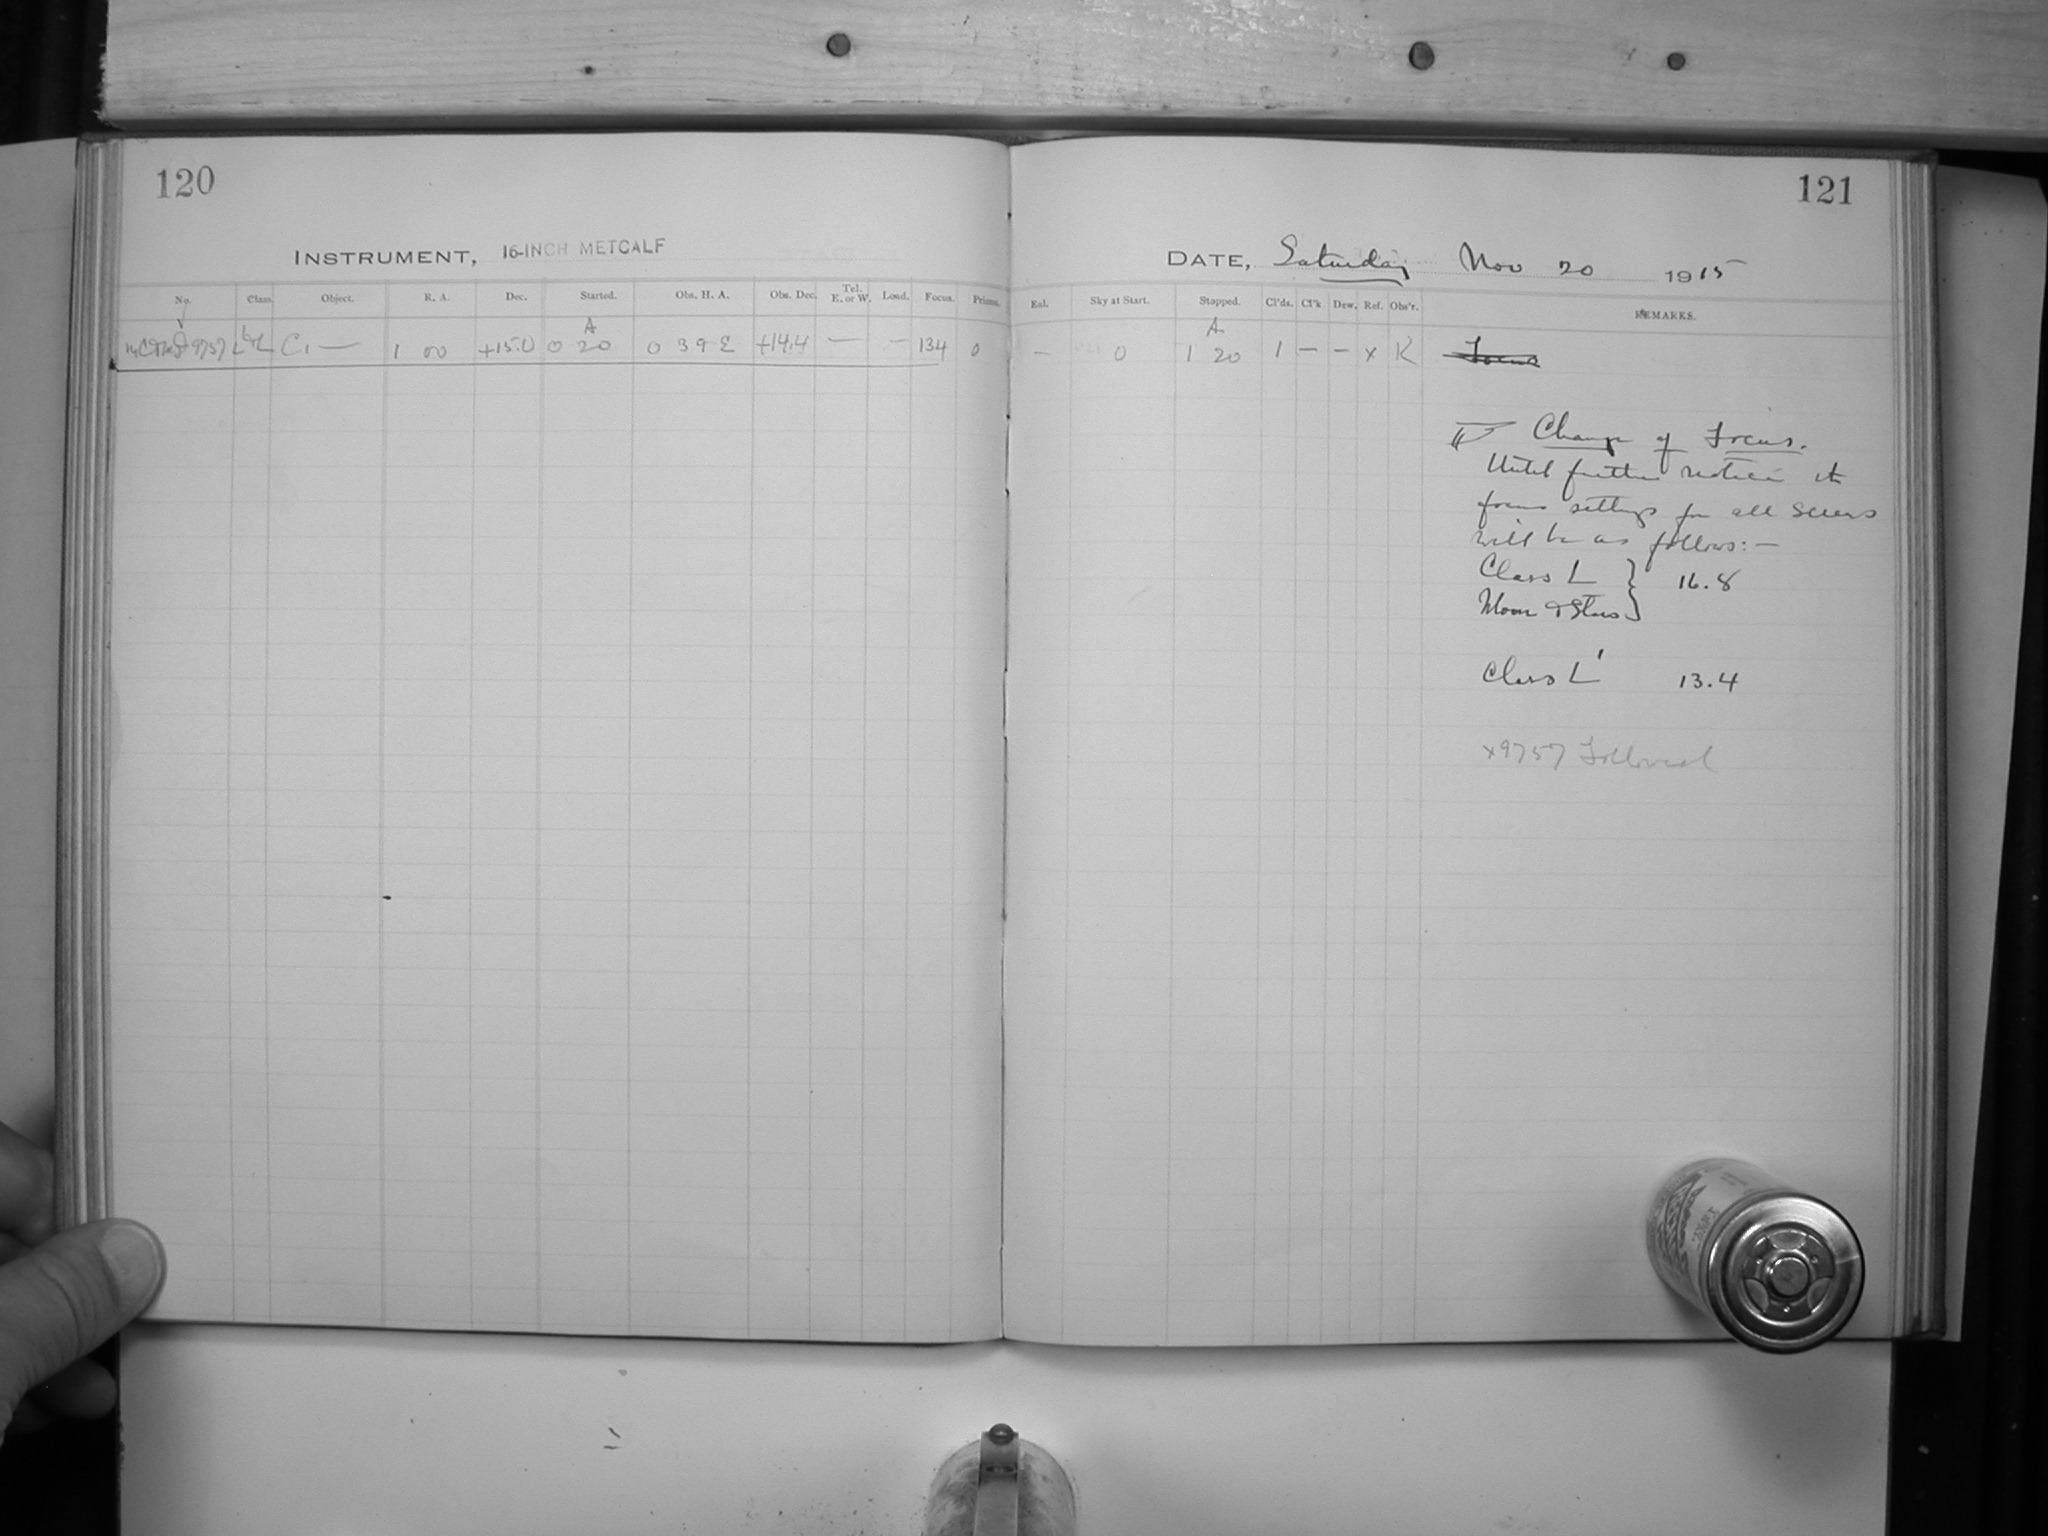 120
121
INSTRUMENT, 16-INCH METCALF
DATE, Saturday Nov 20 1915
No. Class. Object. R. A. Dec. Started. Obs. H. A. Obs. Dec. Tel. E. or W. Load. Focus. Prisms.
Eal. Sky at Start. Stopped. Cl'ds. Cl'k Dew. Ref. Obs'r. REMARKS.
A
9757 C, — 1 00 +15.0 0 20 0 39 E +14.4 — — 134 0
A
— 0 1 20 1 — — x K Focus
Change of Focus.
Until further notice the
focus settings for all series
will be as follows:—
Class L } 16.8
Moon & Stars }
Class L' 13.4
x9757 Followed